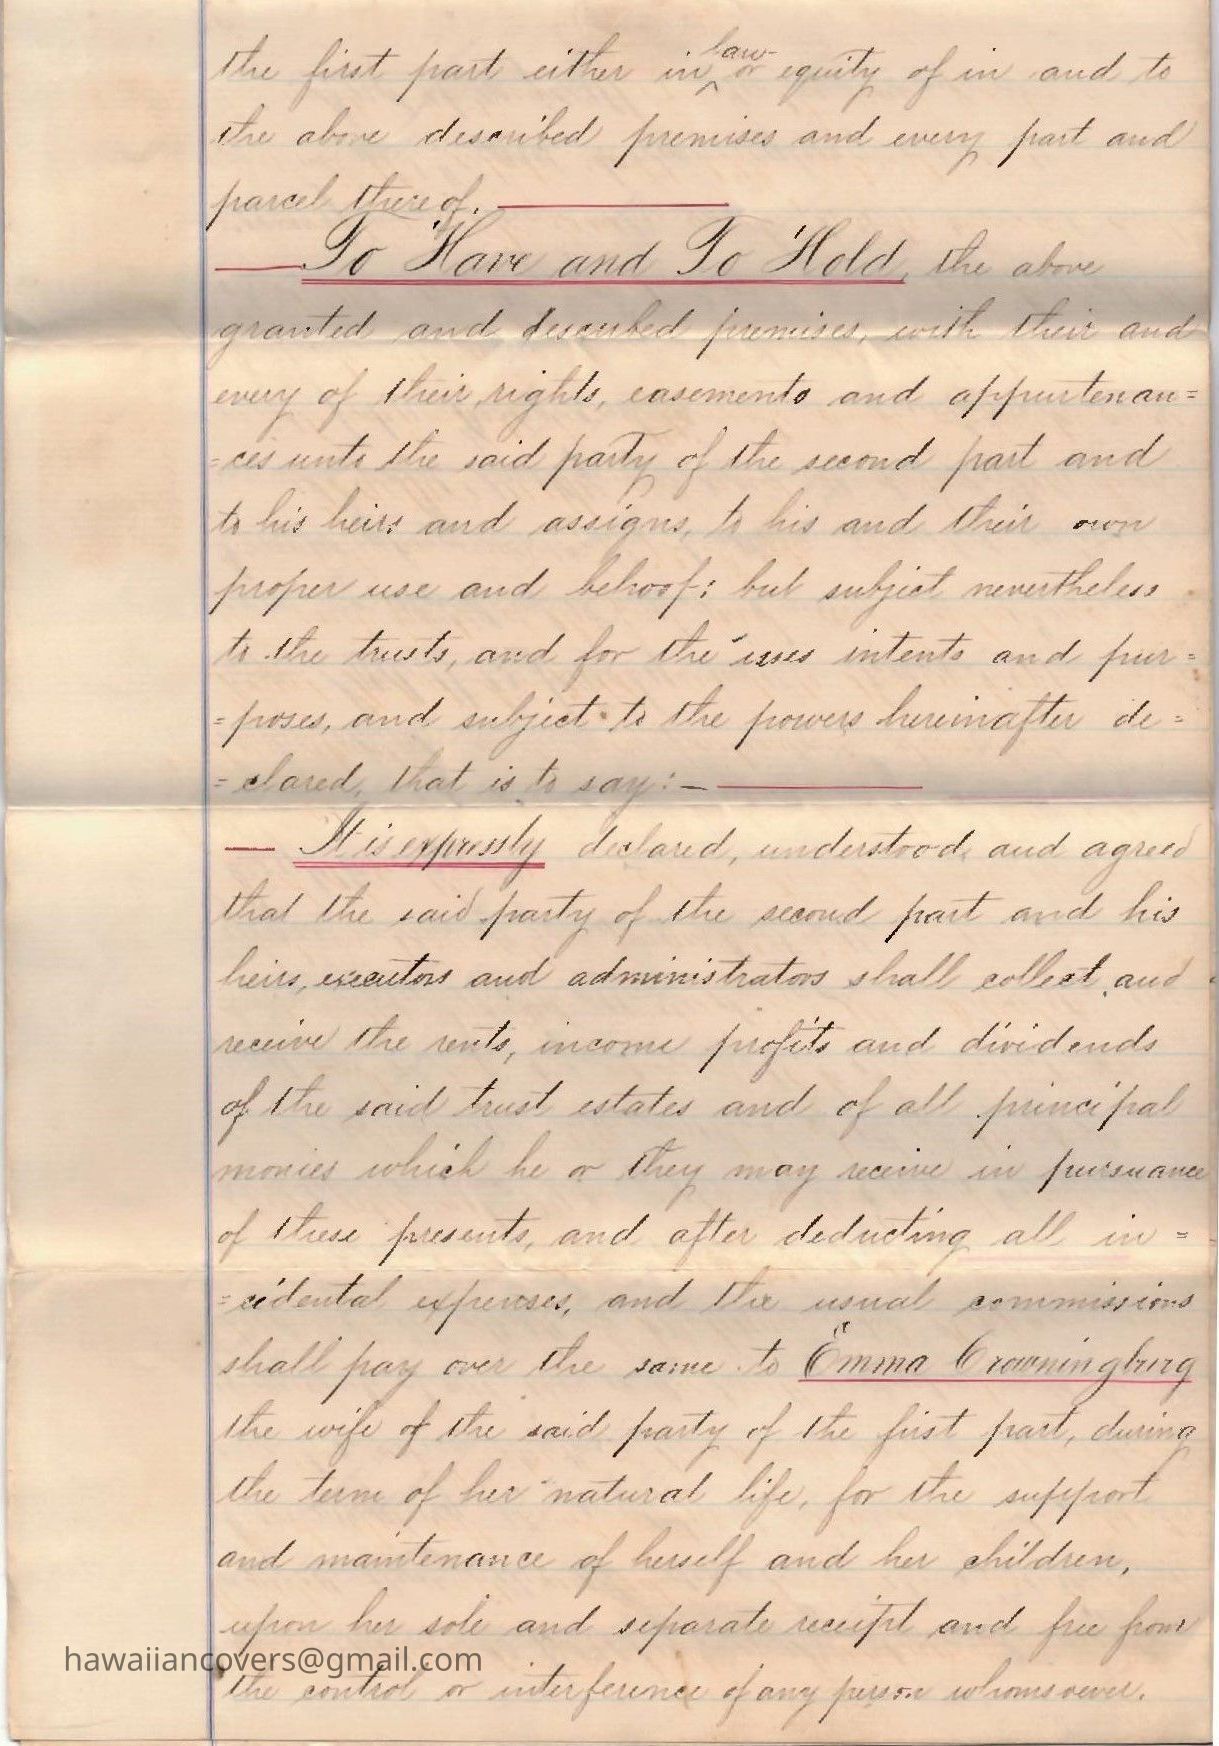 the first part either in ^law or equity of in and to
the above described premises and every part and
parcel thereof.
To Have and To Hold, the above
granted and described premises, with their and
every of their rights, easements and appurtenan=
=ces unto the said party of the second part and
to his heirs and assigns, to his and their own
proper use and behoof; but subject nevertheless
to the trusts, and for the uses intents and pur=
=poses, and subject to the powers hereinafter de=
=clared, that is to say:—
It is expressly declared, understood, and agreed
that the said party of the second part and his
heirs, executors and administrators shall collect and
receive the rents, income profits and dividends
of the said trust estates and of all principal
monies which he or they may receive in pursuance
of these presents, and after deducting all in=
=cidental expenses, and the usual commissions
shall pay over the same to Emma Crowningburg
the wife of the said party of the first part, during
the term of her natural life, for the support
and maintenance of herself and her children,
upon her sole and separate receipt and free from
hawaiiancovers@gmail.com
the control or interference of any person whomsoever.